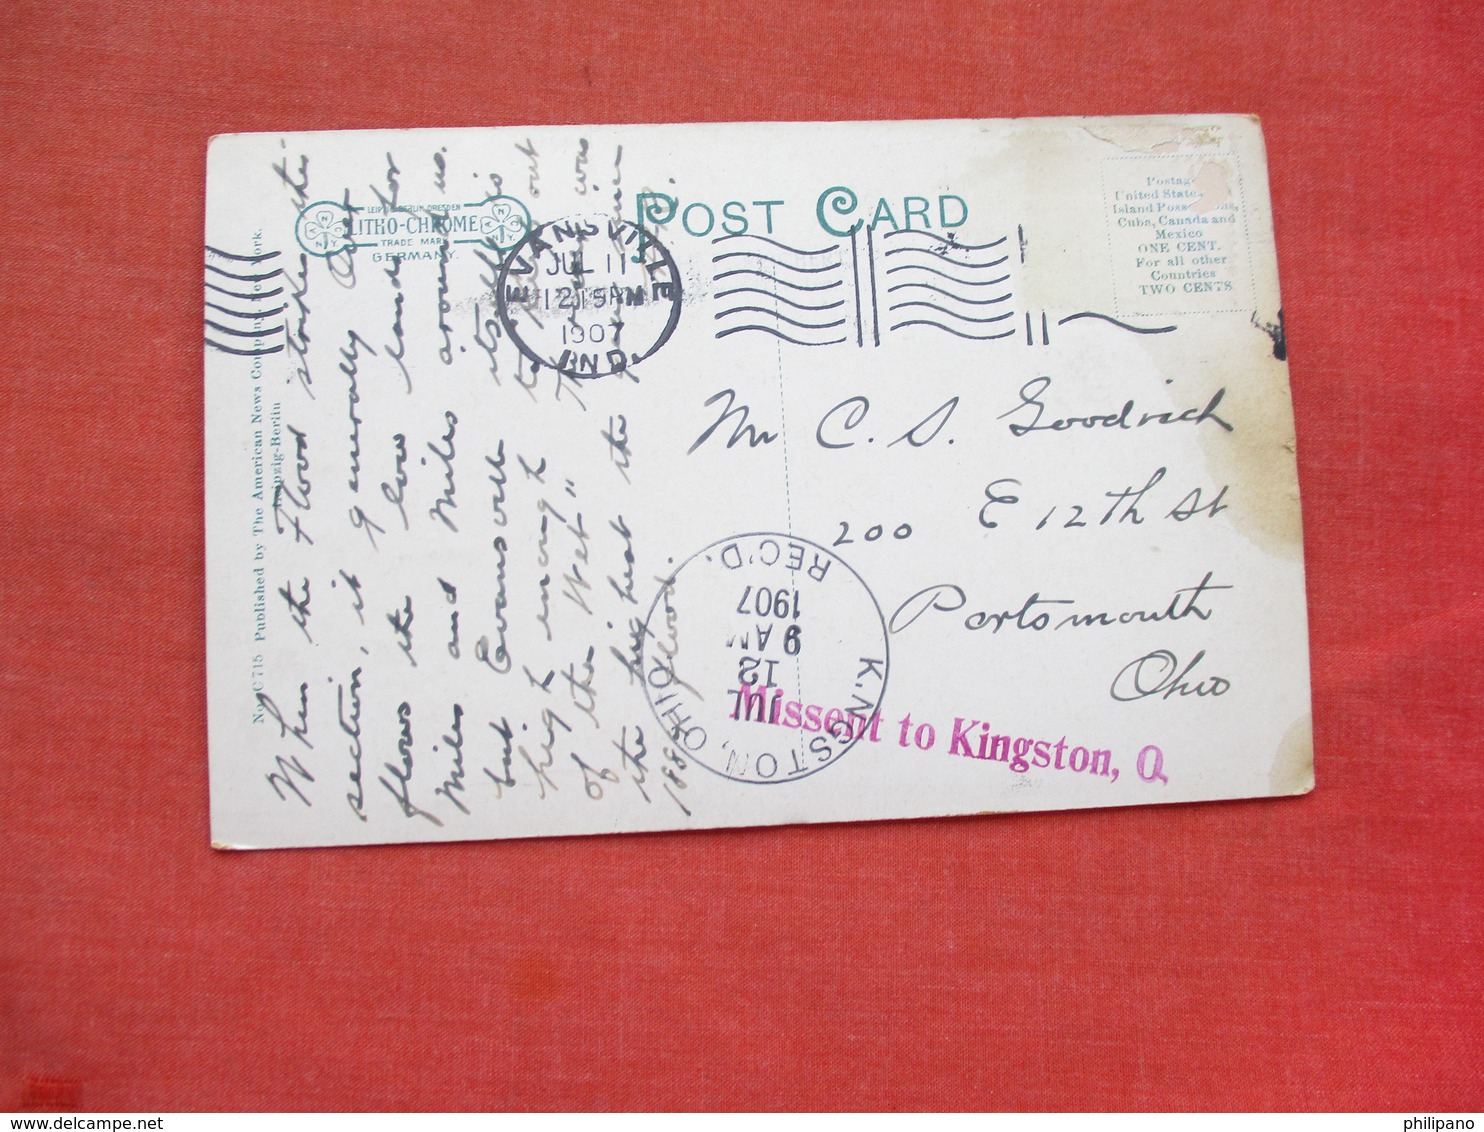 POST CARD
LEIPZIG BERLIN DRESDEN
LITHO-CHROME
TRADE MARK
GERMANY.
No. C 715 Published by The American News Company, New York.
Leipzig-Berlin
Postage
United States
Island Possessions,
Cuba, Canada and
Mexico
ONE CENT.
For all other
Countries
TWO CENTS
EVANSVILLE
JUL 11
12 15 PM
1907
IND.
When the Flood strikes the
section, it generally over
flows the low lands for
Miles and Miles around us.
but Evansville itself is
high enough to keep out
of the "Wet" The was
the highest the
188 flood.
Mr C. S. Goodrich
200 E 12th St
Portsmouth
Ohio
KINGSTON, OHIO
JUL
12
9 AM
1907
REC'D.
Missent to Kingston, O
delcampe.net
philipano